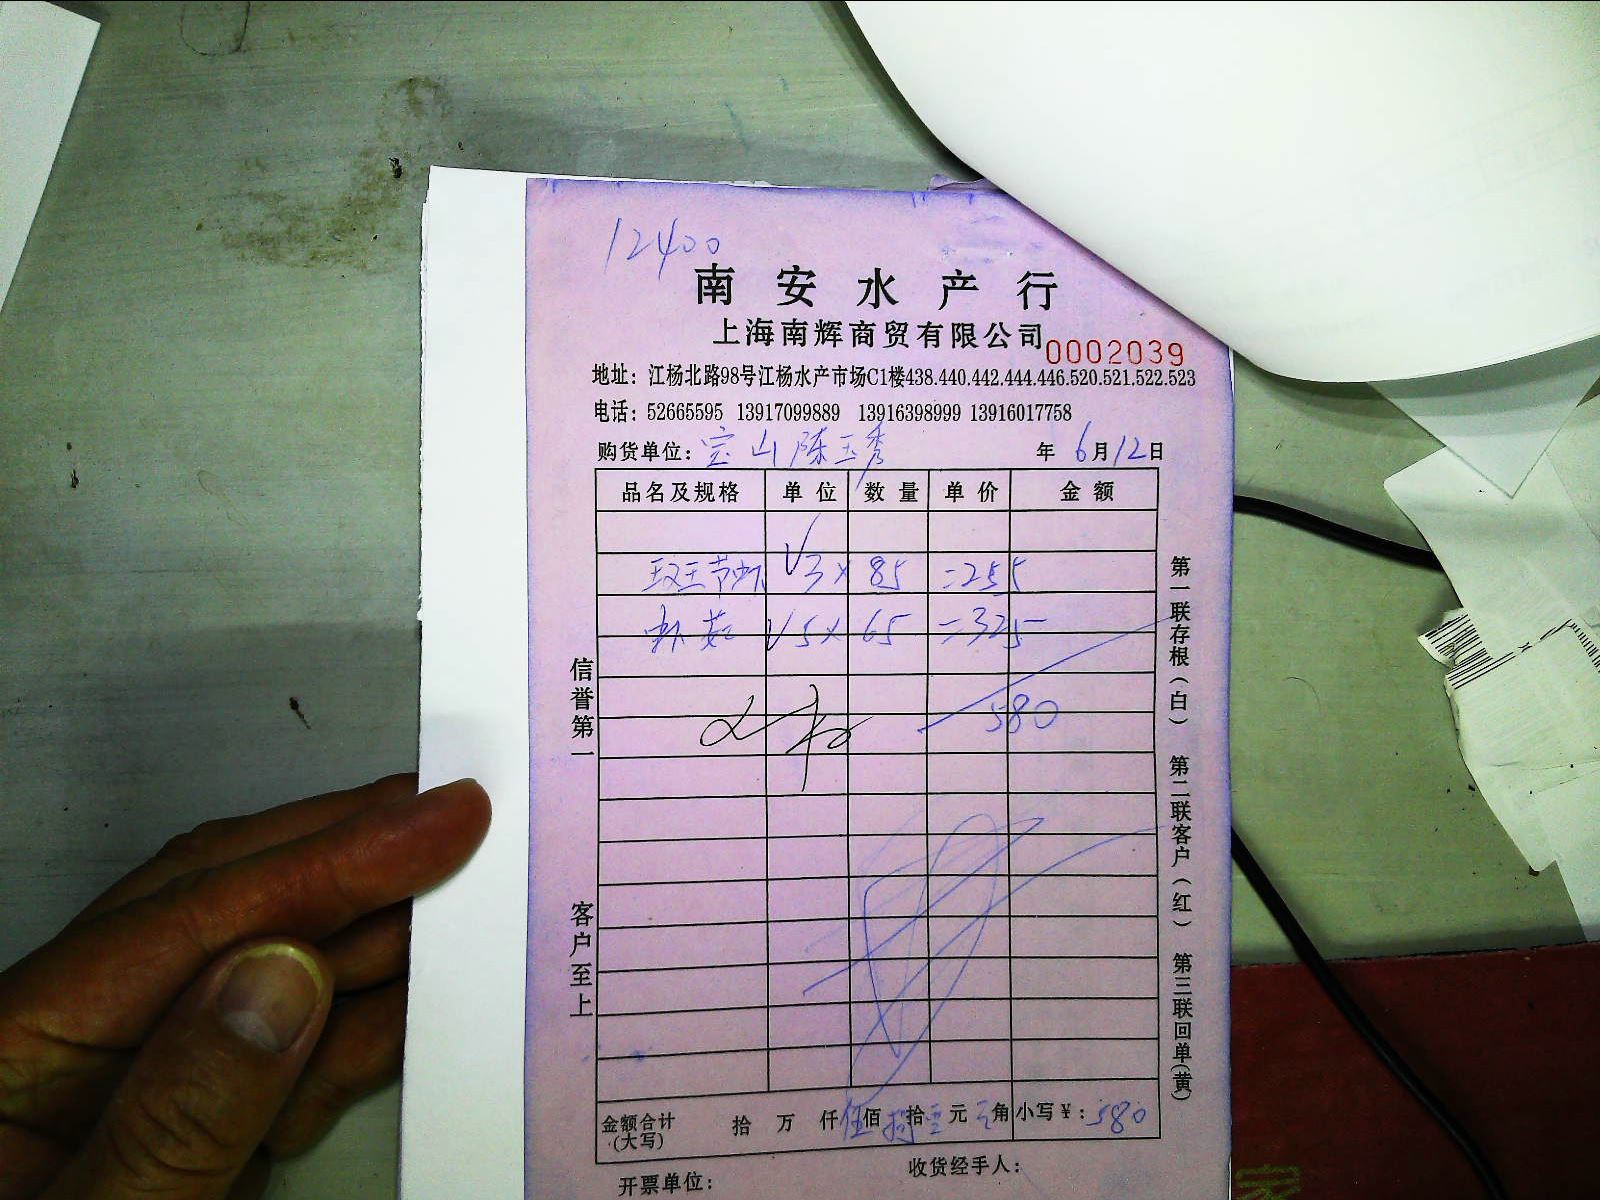 12400
南安水产行
上海南辉商贸有限公司 0002039
地址：江杨北路98号江杨水产市场C1楼438.440.442.444.446.520.521.522.523
电话：52665595 13917099889 13916398999 13916017758
购货单位：宝山陈玉秀 年 6月12日
品名及规格 单位 数量 单价 金额
斑节虾 3× 85 =255
虾菇 5× 65 =325
580
信誉第一 客户至上
第一联存根（白） 第二联客户（红） 第三联回单（黄）
金额合计（大写） 拾 万 仟 伍佰 捌拾 元 角 小写￥：580
开票单位： 收货经手人：